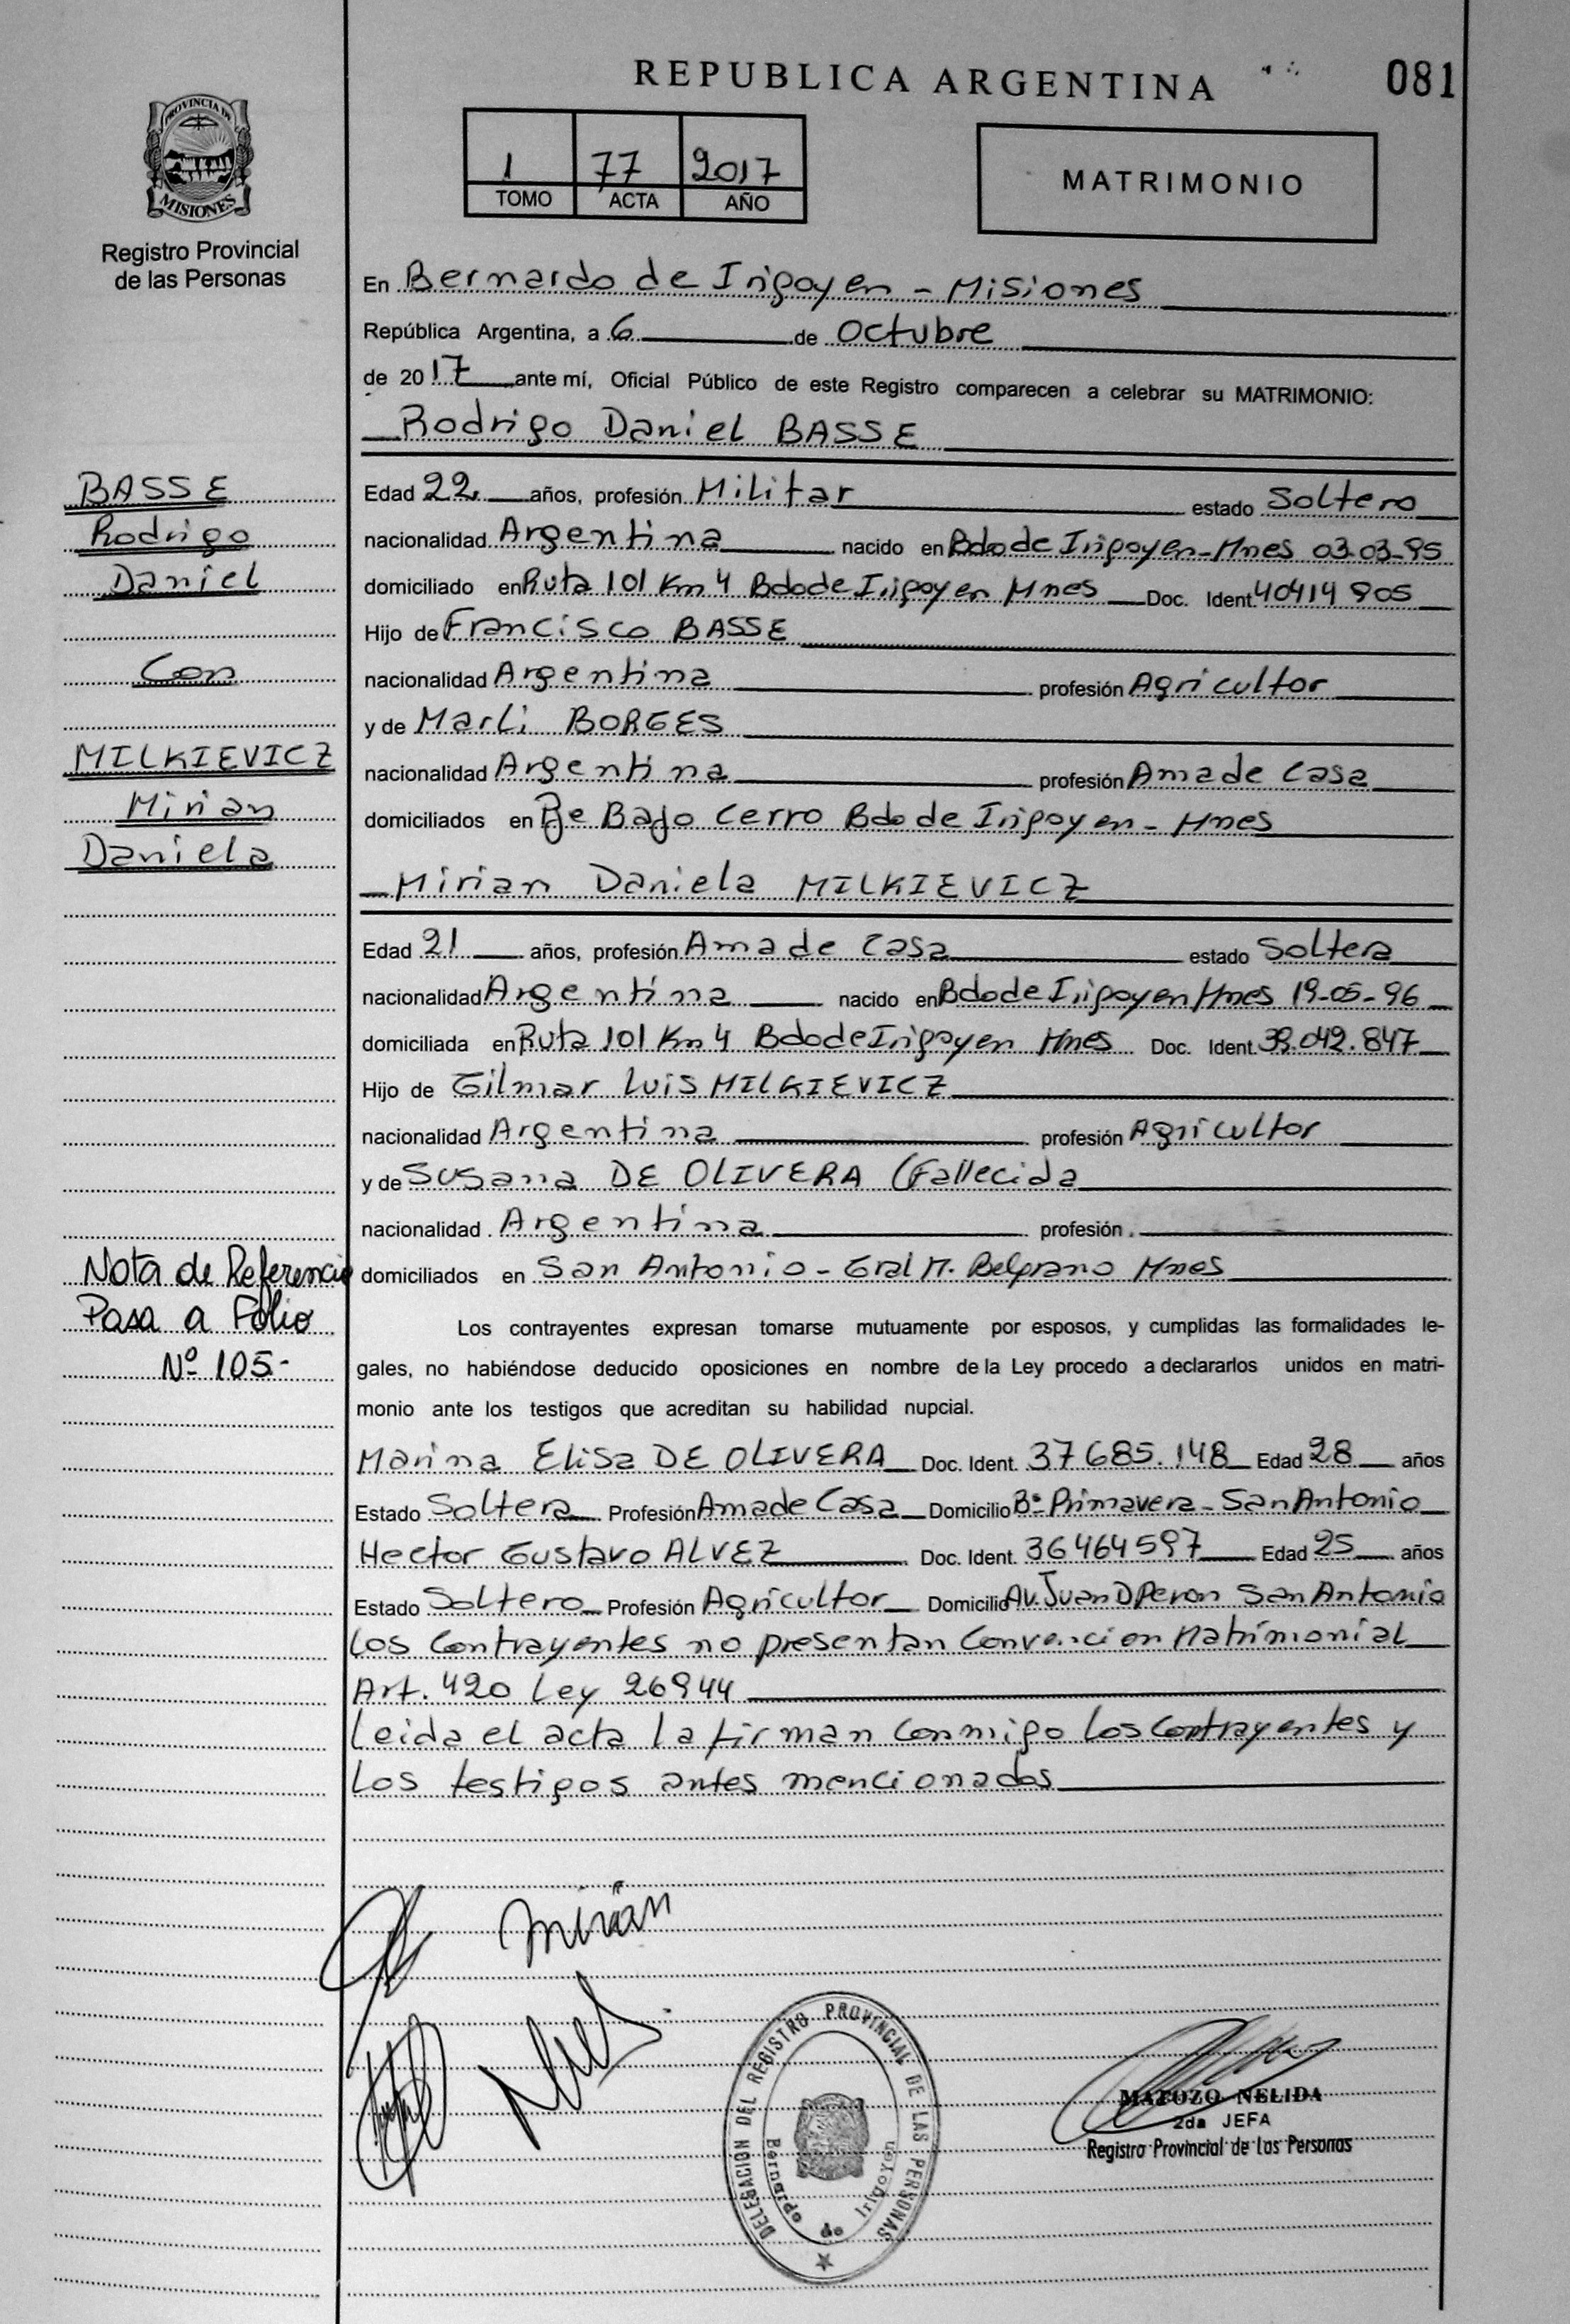 REPUBLICA ARGENTINA
081
PROVINCIA DE
MISIONES
Registro Provincial
de las Personas
1 77 2017
TOMO ACTA AÑO
MATRIMONIO
En Bernardo de Irigoyen - Misiones
República Argentina, a 6 de Octubre
de 2017 ante mí, Oficial Público de este Registro comparecen a celebrar su MATRIMONIO:
Rodrigo Daniel BASSE
BASSE
Rodrigo
Daniel
Con
MILKIEVICZ
Mirian
Daniela
Edad 22 años, profesión Militar estado Soltero
nacionalidad Argentina nacido en Bdo de Irigoyen - Mnes 03-03-95
domiciliado en Ruta 101 Km 4 Bdo de Irigoyen Mnes Doc. Ident. 40414905
Hijo de Francisco BASSE
nacionalidad Argentina profesión Agricultor
y de Marli BORGES
nacionalidad Argentina profesión Ama de Casa
domiciliados en Bajo Cerro Bdo de Irigoyen - Mnes
Mirian Daniela MILKIEVICZ
Edad 21 años, profesión Ama de Casa estado Soltera
nacionalidad Argentina nacido en Bdo de Irigoyen Mnes 19-05-96
domiciliada en Ruta 101 Km 4 Bdo de Irigoyen Mnes Doc. Ident. 39.042.847
Hijo de Gilmar Luis MILKIEVICZ
nacionalidad Argentina profesión Agricultor
y de Susana DE OLIVERA (Fallecida
nacionalidad Argentina profesión
domiciliados en San Antonio - Gral M. Belgrano Mnes
Nota de Referencia
Pasa a Folio
Nº 105.-
Los contrayentes expresan tomarse mutuamente por esposos, y cumplidas las formalidades le-
gales, no habiéndose deducido oposiciones en nombre de la Ley procedo a declararlos unidos en matri-
monio ante los testigos que acreditan su habilidad nupcial.
Marina Elisa DE OLIVERA Doc. Ident. 37685.148 Edad 28 años
Estado Soltera Profesión Ama de Casa Domicilio Bº Primavera - San Antonio
Hector Gustavo ALVEZ Doc. Ident. 36464597 Edad 25 años
Estado Soltero Profesión Agricultor Domicilio Av. Juan D Peron San Antonio
Los Contrayentes no presentan Convencion Matrimonial
Art. 420 Ley 26944
Leida el acta la firman Conmigo los Contrayentes y
los testigos antes mencionados
Mirian
DELEGACION DEL REGISTRO PROVINCIAL DE LAS PERSONAS
Bernardo de Irigoyen
MATOZO NELIDA
2da JEFA
Registro Provincial de las Personas